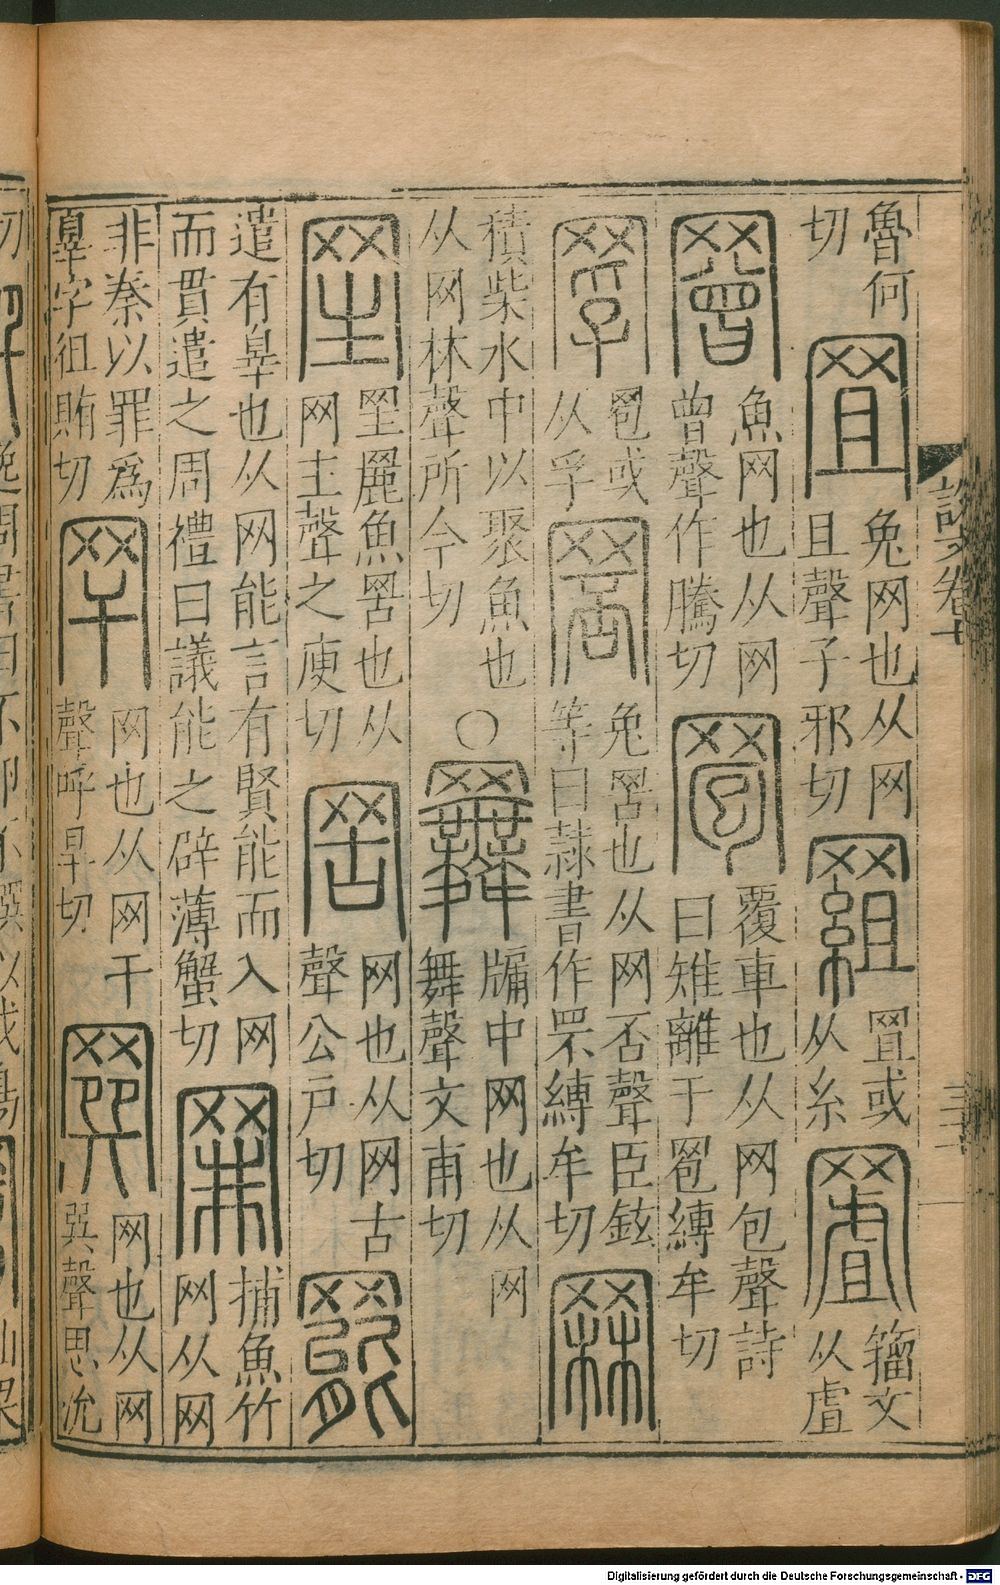 魯何
切
罝
兔网也从网
且聲子邪切
罝或
从糸
籀文
从虘
罾
魚网也从网
曾聲作騰切
䍖
覆車也从网包聲詩
曰雉離于䍖縛牟切
罦
䍖或
从孚
兔罟也从网否聲臣鉉
等曰隸書作罘縛牟切
罧
積柴水中以聚魚也
从网林聲所今切
○
牖中网也从网
舞聲文甫切
罜
罜麗魚罟也从
网主聲之庾切
罟
网也从网古
聲公戶切
罷
遣有辠也从网能言有賢能而入网
而貫遣之周禮曰議能之辟薄蟹切
罪
捕魚竹
网从网
非秦以罪爲
辠字徂賄切
罕
网也从网干
聲呼旱切
网也从网
巽聲思沇
說文卷七
Digitalisierung gefördert durch die Deutsche Forschungsgemeinschaft - DFG